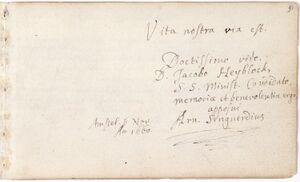 Vita nostra via est.
Doctissimo viro,
D. Jacobo Heyblock,
S. S. Minist. Candidato,
memoriæ et benevolentiæ ergo
apposui
Arn. Senguerdius
Amstel. 6 Nov.
Ao 1660.